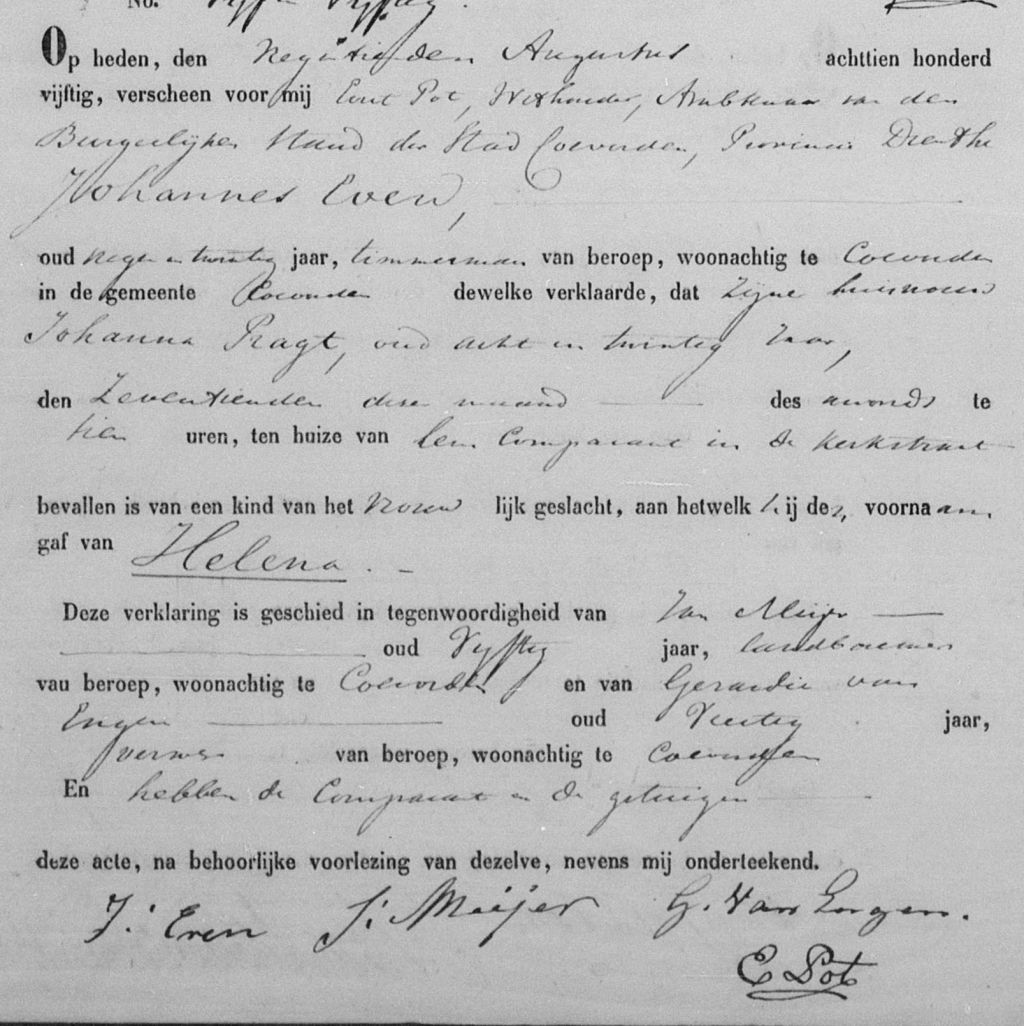 No. Vyf en Vyftig
Op heden, den Negentienden Augustus achttien honderd
vijftig, verscheen voor mij Evert Pot, Wethouder, Ambtenaar van den
Burgerlijken Stand der Stad Coevorden, Provincie Drenthe
Johannes Even,
oud negen en twintig jaar, timmerman van beroep, woonachtig te Coevorden
in de gemeente Coevorden dewelke verklaarde, dat zijne huisvrouw
Johanna Pragt, oud acht en twintig Jaar,
den Zeventienden dezer maand des avonds te
tien uren, ten huize van hem Comparant in de Kerkstraat
bevallen is van een kind van het vrouw lijk geslacht, aan hetwelk hij den voornaam
gaf van Helena.
Deze verklaring is geschied in tegenwoordigheid van Jan Meijer
oud Vyftig jaar, landbouwer
van beroep, woonachtig te Coevorden en van Gerardie van
Engen oud Veertig jaar,
verwer van beroep, woonachtig te Coevorden
En hebben de Comparant en de getuigen
deze acte, na behoorlijke voorlezing van dezelve, nevens mij onderteekend.
J. Even J. Meijer G. Van Engen.
E Pot